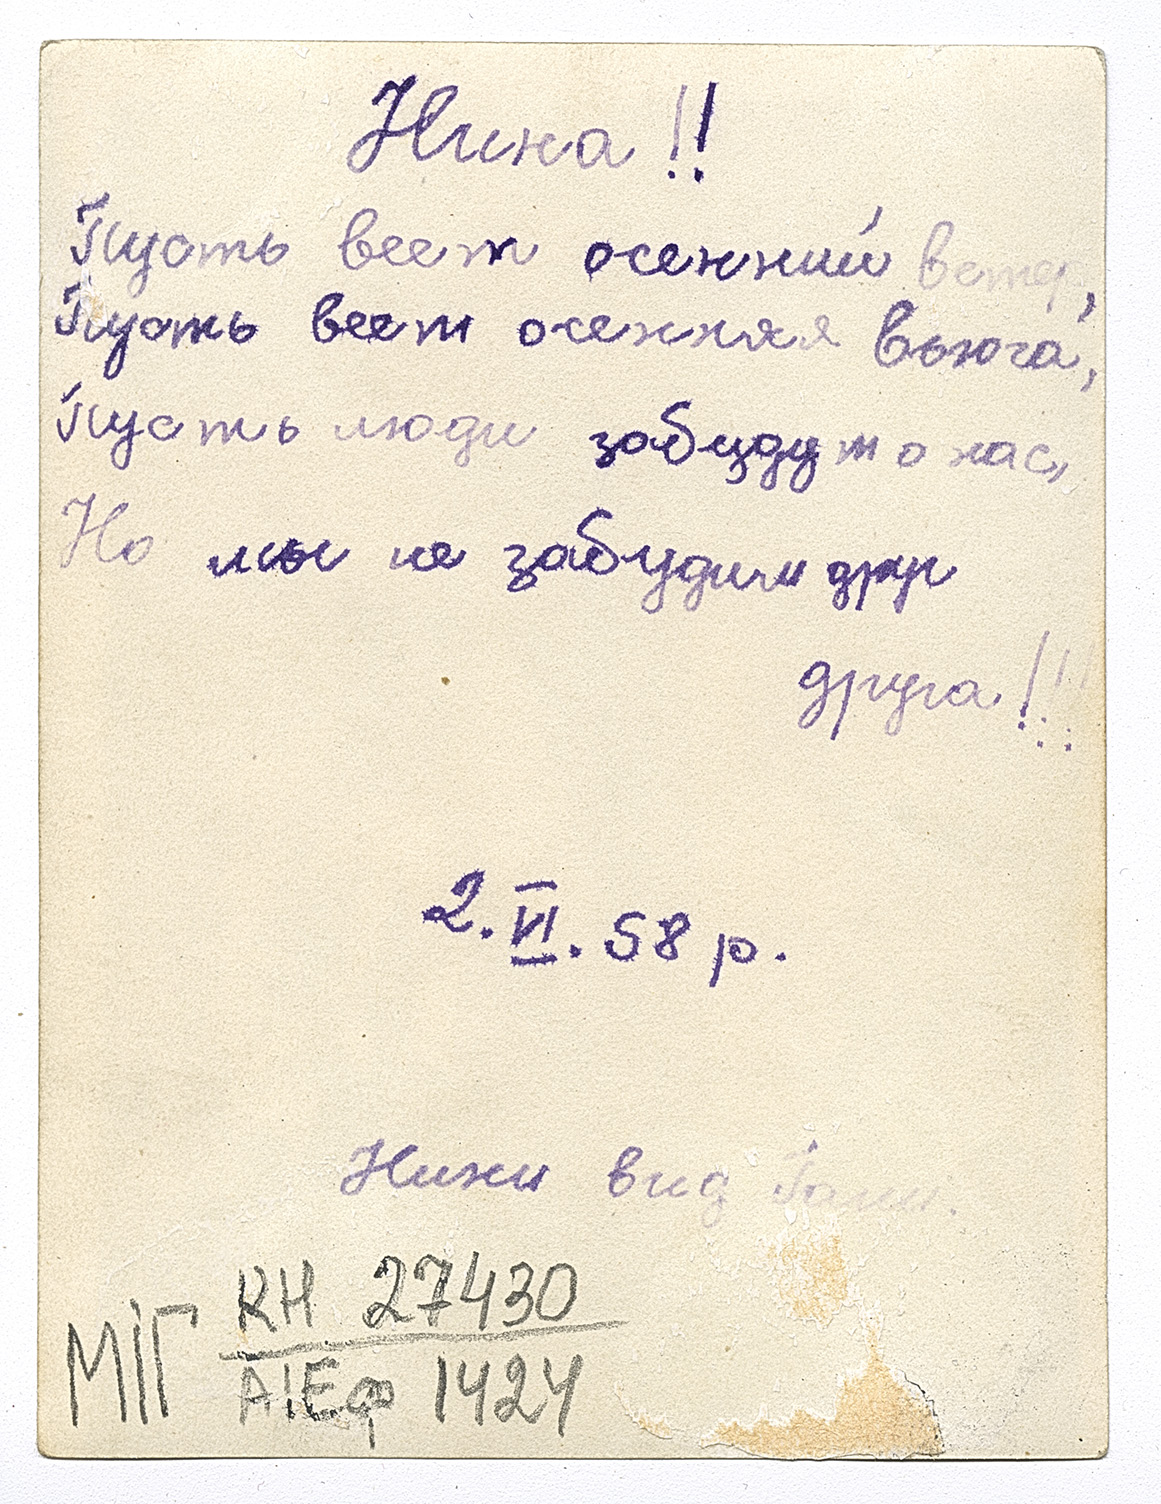 Нина!!
Пусть веет осенний ветер,
Пусть веет осенняя вьюга,
Пусть люди забудут о нас,
Но мы не забудим друг
друга!!!
2.VI.58 р.
Нини вид Гали.
МІГ КН 27430
АІЕФ 1424